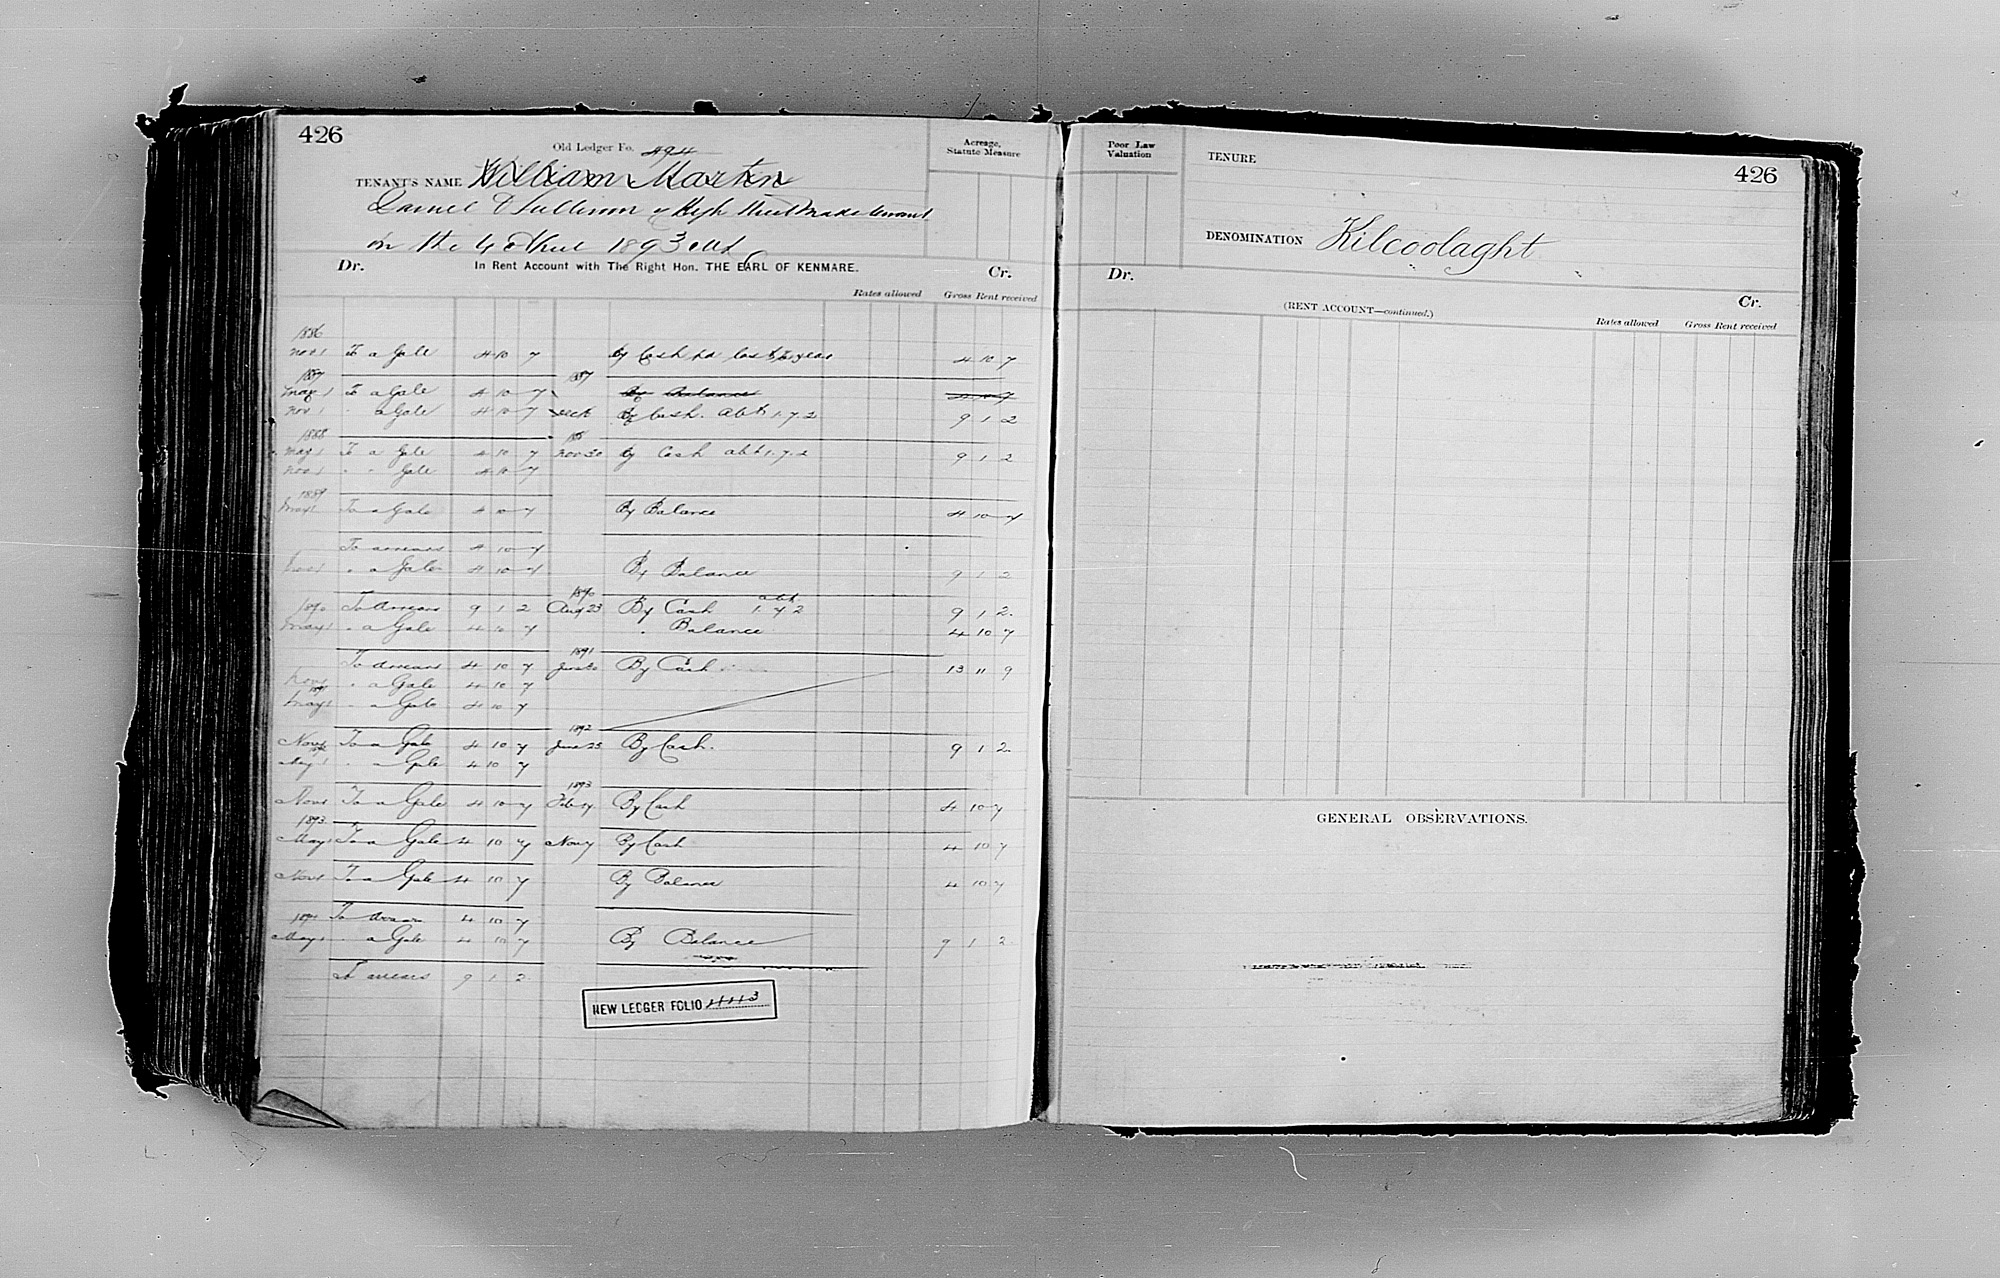 426
Old Ledger Fo. 494
Acreage,
Statute Measure
TENANT'S NAME William Martin
Daniel O Sullivan of High Street made tenant
on the 4 1893
Dr. In Rent Account with The Right Hon. THE EARL OF KENMARE. Cr.
Rates allowed Gross Rent received
1886
Nov 1 To a Gale 4 10 7 By Cash pd last year 4 10 7
1887 1887
May 1 To a Gale 4 10 7 By Balance 4 10 7
Nov 1 " a Gale 4 10 7 By Cash. abt 1.7.2 9 1 2
1888
May 1 To a Gale 4 10 7 Nov 30 By Cash abt 1.7.2 9 1 2
Nov 1 " " Gale 4 10 7
1889
May 1 To a Gale 4 10 7 By Balance 4 10 7
To arrears 4 10 7
Nov 1 " a Gale 4 10 7 By Balance 9 1 2
1890 abt
1890 To arrears 9 1 2 Aug 23 By Cash 1 7 2 9 1 2.
May 1 " a Gale 4 10 7 " Balance 4 10 7
1891
To arrears 4 10 7 By Cash 13 11 9
Nov 1 " a Gale 4 10 7
1891
May 1 " a Gale 4 10 7
1892
Nov 1 To a Gale 4 10 7 June 25 By Cash. 9 1 2.
May 1 " a Gale 4 10 7
1893
Nov 1 To a Gale 4 10 7 Feb 14 By Cash 4 10 7
1893
May 1 To a Gale 4 10 7 Nov 7 By Cash 4 10 7
Nov 1 To a Gale 4 10 7 By Balance 4 10 7
1894 To arrears 4 10 7
May 1 " a Gale 4 10 7 By Balance 9 1 2
To arrears 9 1 2
NEW LEDGER FOLIO 4443
Poor Law
Valuation
TENURE
426
DENOMINATION Kilcoolaght
Dr.
(RENT ACCOUNT—continued.)
Cr.
Rates allowed Gross Rent received
GENERAL OBSERVATIONS.